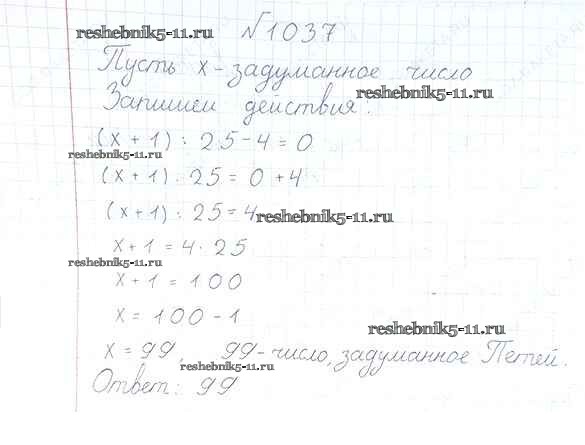 reshebnik5-11.ru №1037
Пусть x - задуманное число
Запишем действия. reshebnik5-11.ru
(x + 1) : 25 - 4 = 0
reshebnik5-11.ru
(x + 1) : 25 = 0 + 4
(x + 1) : 25 = 4 reshebnik5-11.ru
x + 1 = 4 · 25
reshebnik5-11.ru
x + 1 = 100
x = 100 - 1
reshebnik5-11.ru
x = 99, 99 - число, задуманное Петей.
reshebnik5-11.ru
Ответ: 99